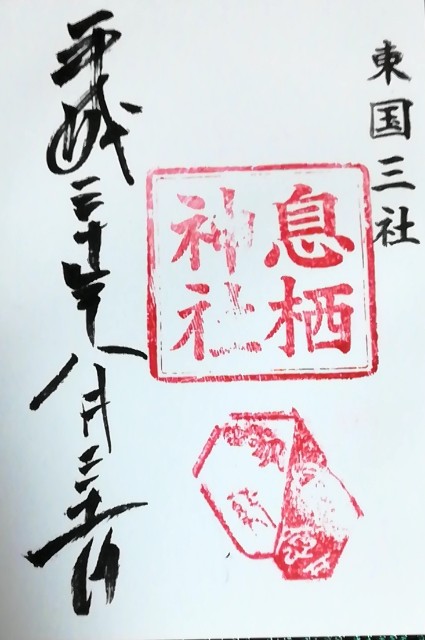 東国三社
息栖
神社
平成三十年八月三十一日